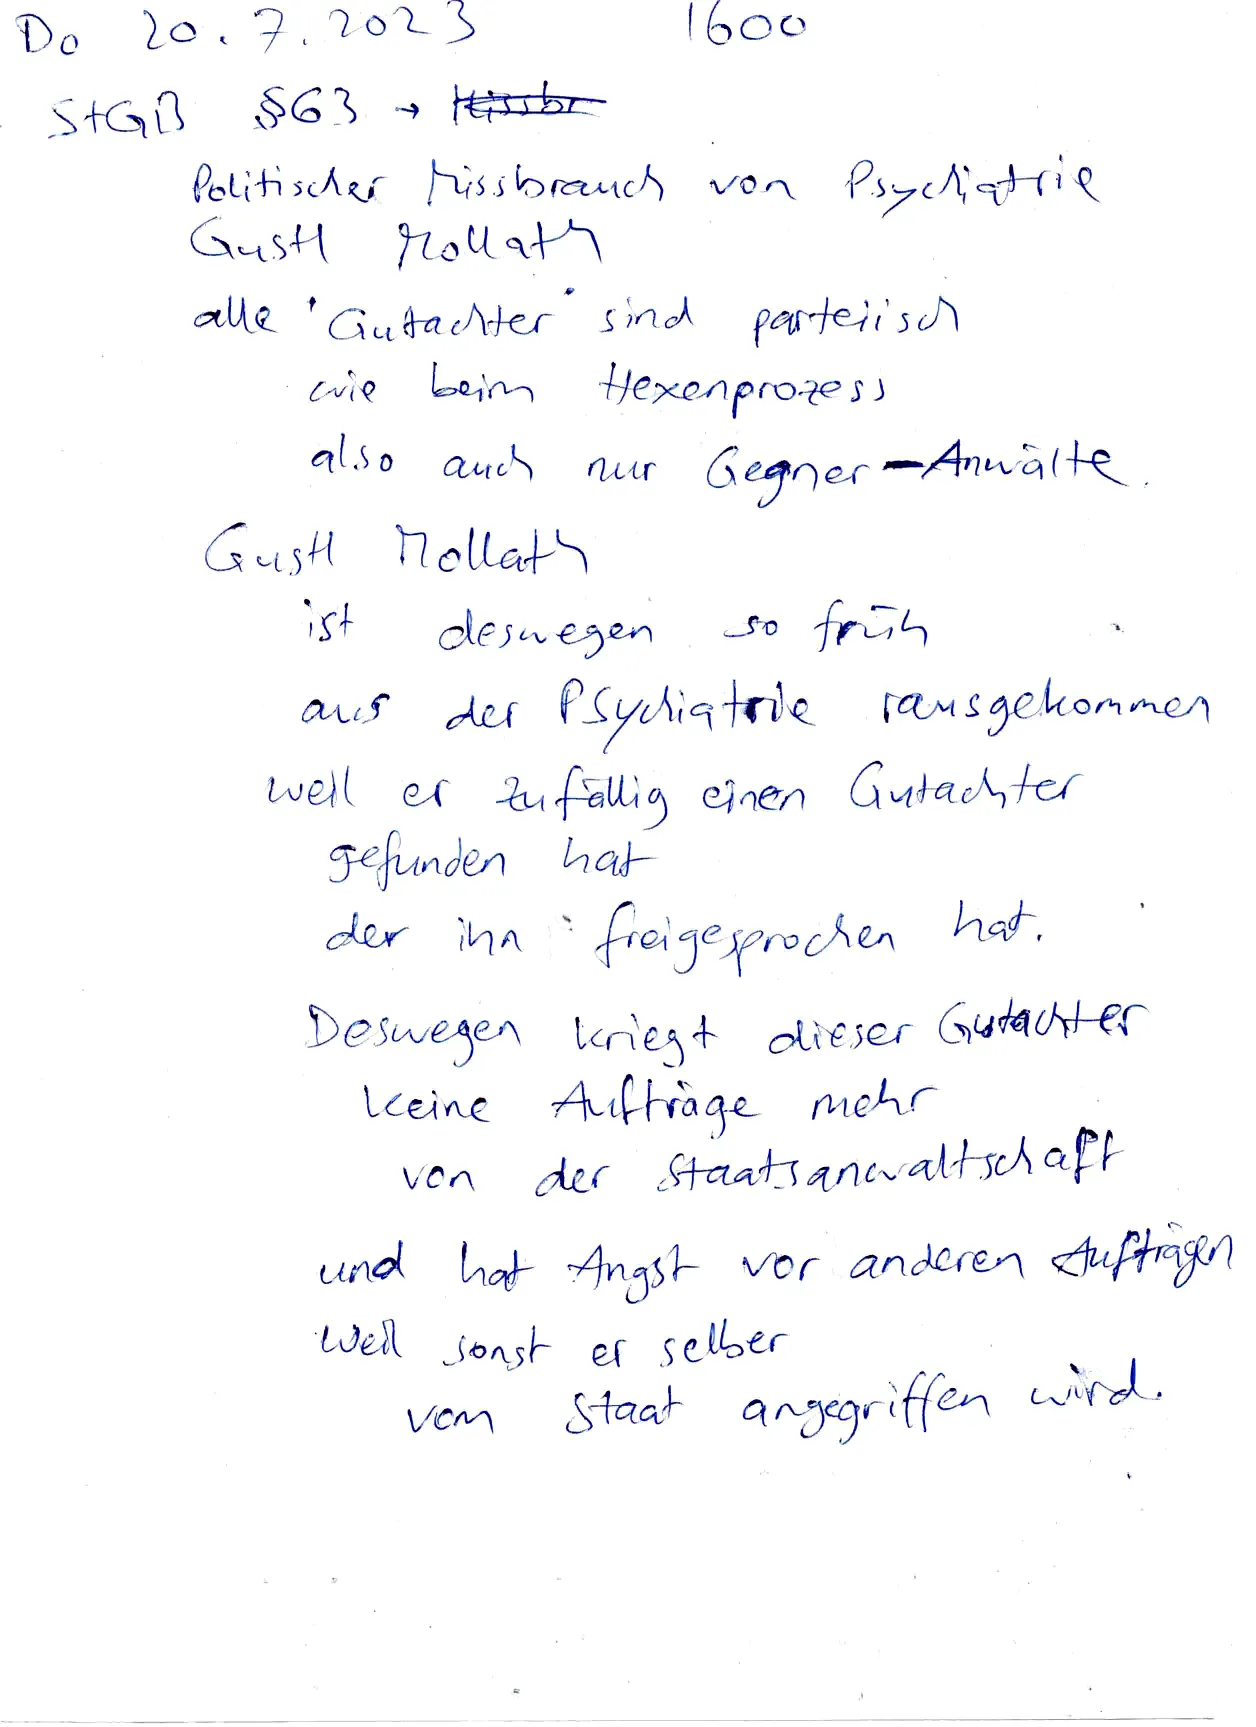 Do 20.7.2023 1600
StGB §63 → Missbr
Politischer Missbrauch von Psychiatrie
Gustl Mollath
alle "Gutachter" sind parteiisch
wie beim Hexenprozess
also auch nur Gegner-Anwälte.
Gustl Mollath
ist deswegen so früh
aus der Psychiatrie rausgekommen
weil er zufällig einen Gutachter
gefunden hat
der ihn freigesprochen hat.
Deswegen kriegt dieser Gutachter
keine Aufträge mehr
von der Staatsanwaltschaft
und hat Angst vor anderen Aufträgen
weil sonst er selber
vom Staat angegriffen wird.